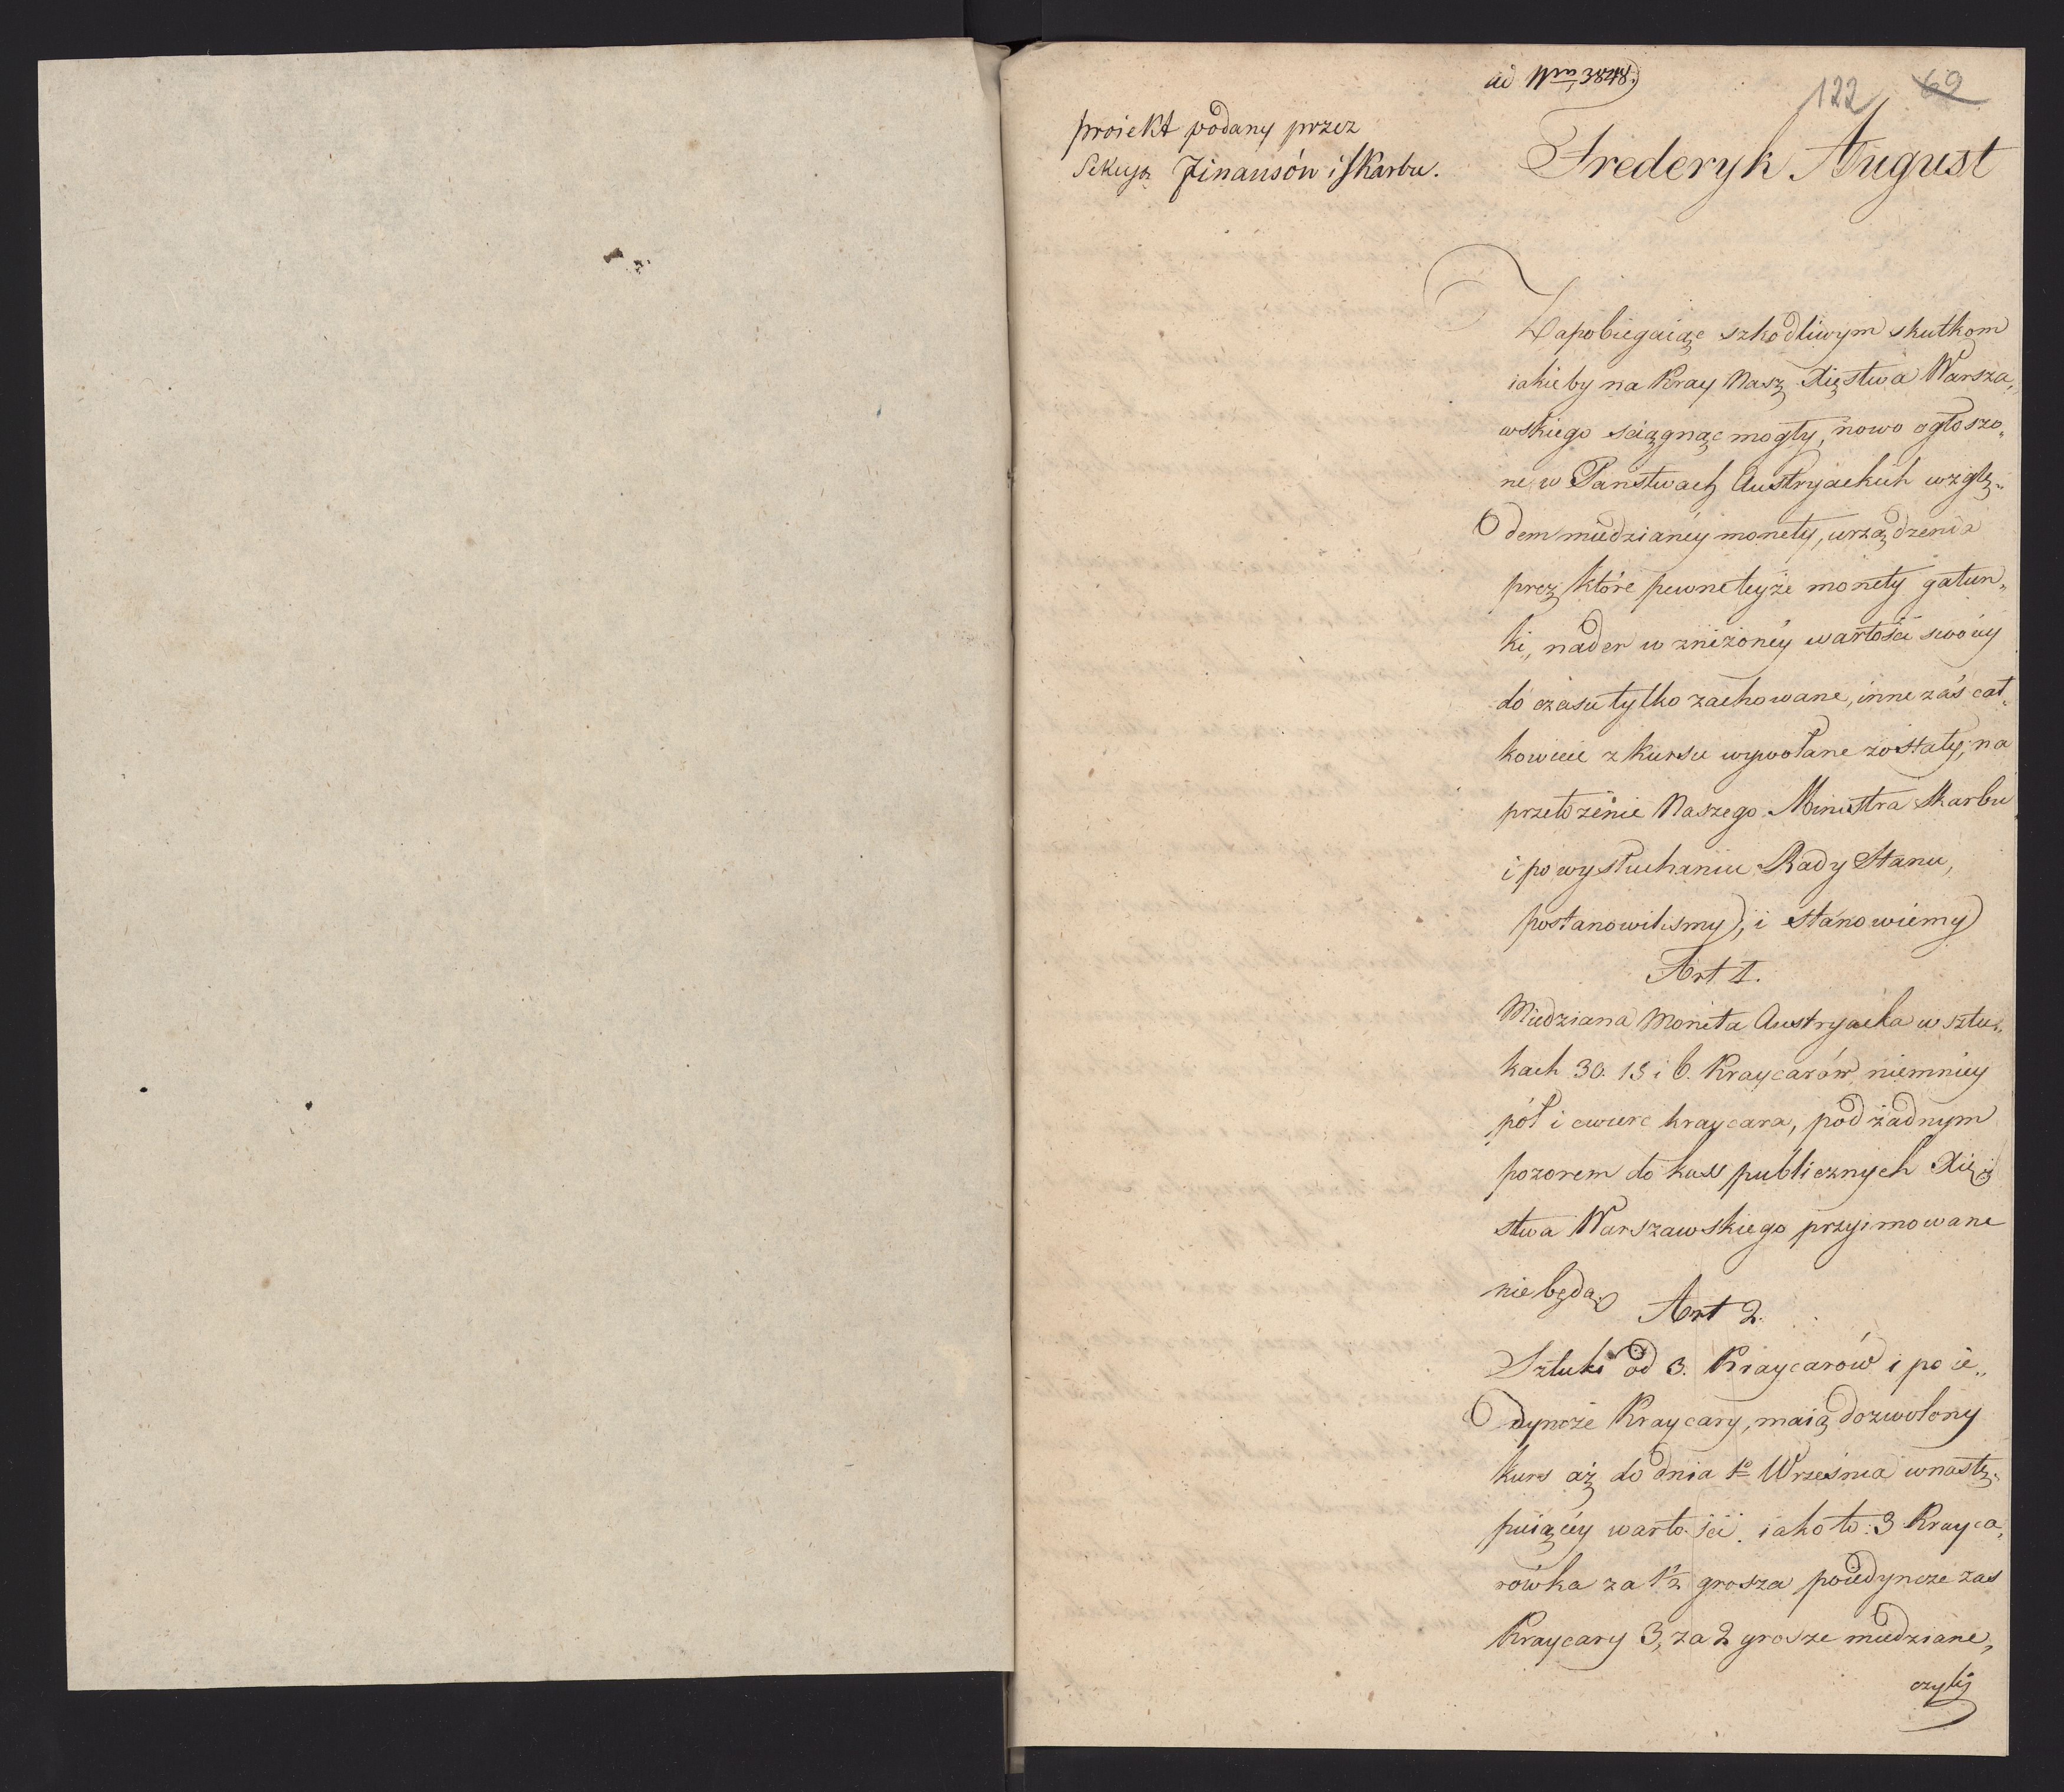 ad Nrm 3848.
122 69
proiekt podany przez
Sekcyą Finansów i Skarbu.
Frederyk August
Zapobiegaiąc szkodliwym skutkom
iakieby na Kray Nasz Xięstwa Warsza„
wskiego sciągnąc mogły, nowo ogłoszo„
ne w Panstwach Austryackich wzglę„
dem miedzianéy monety, urządzenia
przez które pewne teyże monety gatun„
ki, nader w zniżonéy wartości swoiey
do czasu tylko zachowane, inne zaś cał„
kowicie z kursu wywołane zostały; na
przełożenie Naszego Ministra Skarbu
i po wysłuchaniu Rady Stanu,
postanowilismy, i stanowiemy
Art 1.
Miedziana Moneta Austryacka w sztu„
kach 30. 15 i 6. Kraycarów niemniey
pół i cwierc kraycara, pod żadnym
pozorem do kass publicznych Xię„
stwa Warszawskiego przyimowane
nie będą.
Art 2.
Sztuki od 3. Kraycarów i po ie„
dyncze Kraycary, maią dozwolony
kurs aż do dnia 1o Września w nastę„
puiącéy wartości. iako to: 3 Krayca„
rówka za 1½ grosza poiedyncze zas
Kraycary 3, za 2 grosze miedziane,
czyli